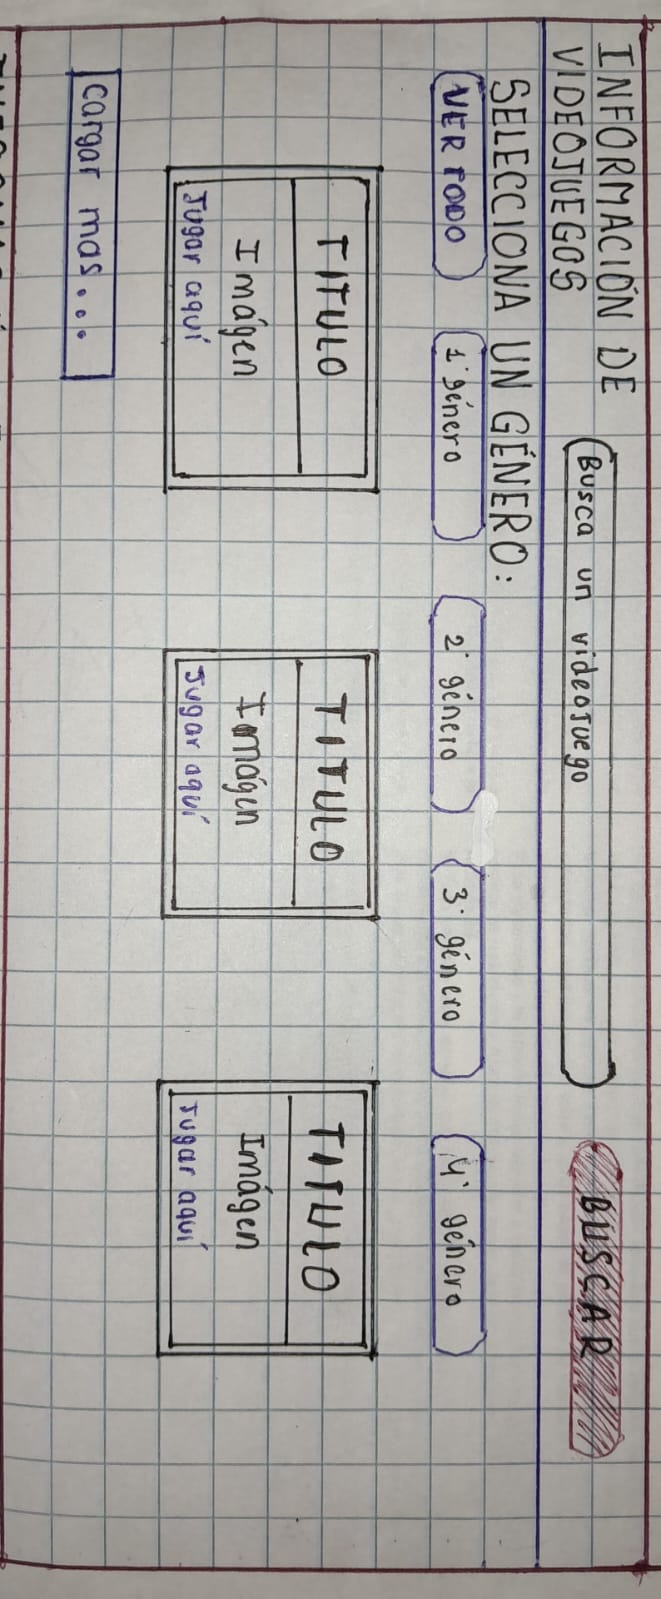 INFORMACIÓN DE
VIDEOJUEGOS
Busca un videojuego
BUSCAR
SELECCIONA UN GÉNERO:
VER TODO
1· género
2· género
3· género
4· género
TITULO
Imágen
Jugar aquí
TITULO
Imágen
Jugar aquí
TITULO
Imágen
Jugar aquí
cargar mas...